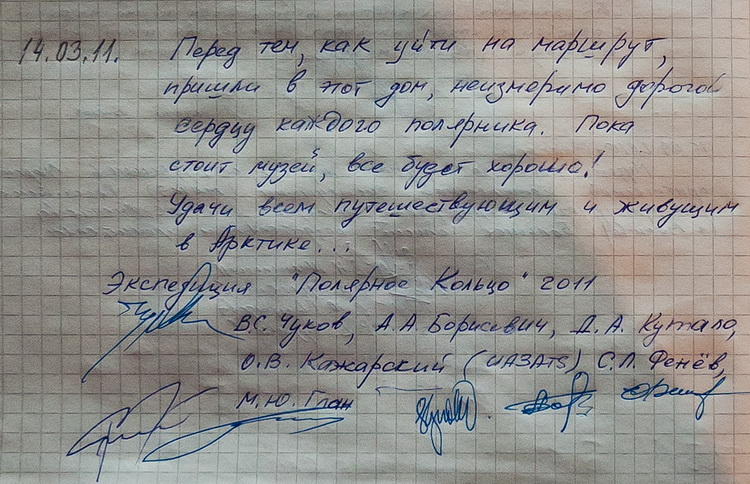 14.03.11. Перед тем, как уйти на маршрут,
пришли в этот дом, неизмеримо дорогой
сердцу каждого полярника. Пока
стоит музей, все будет хорошо!
Удачи всем путешествующим и живущим
в Арктике...
Экспедиция "Полярное Кольцо" 2011
В.С. Чуков, А.А. Борисевич, Д.А. Кутало,
О.В. Кажарский (ИАЗАТS) С.Л. Фенёв,
М.Ю. Глан